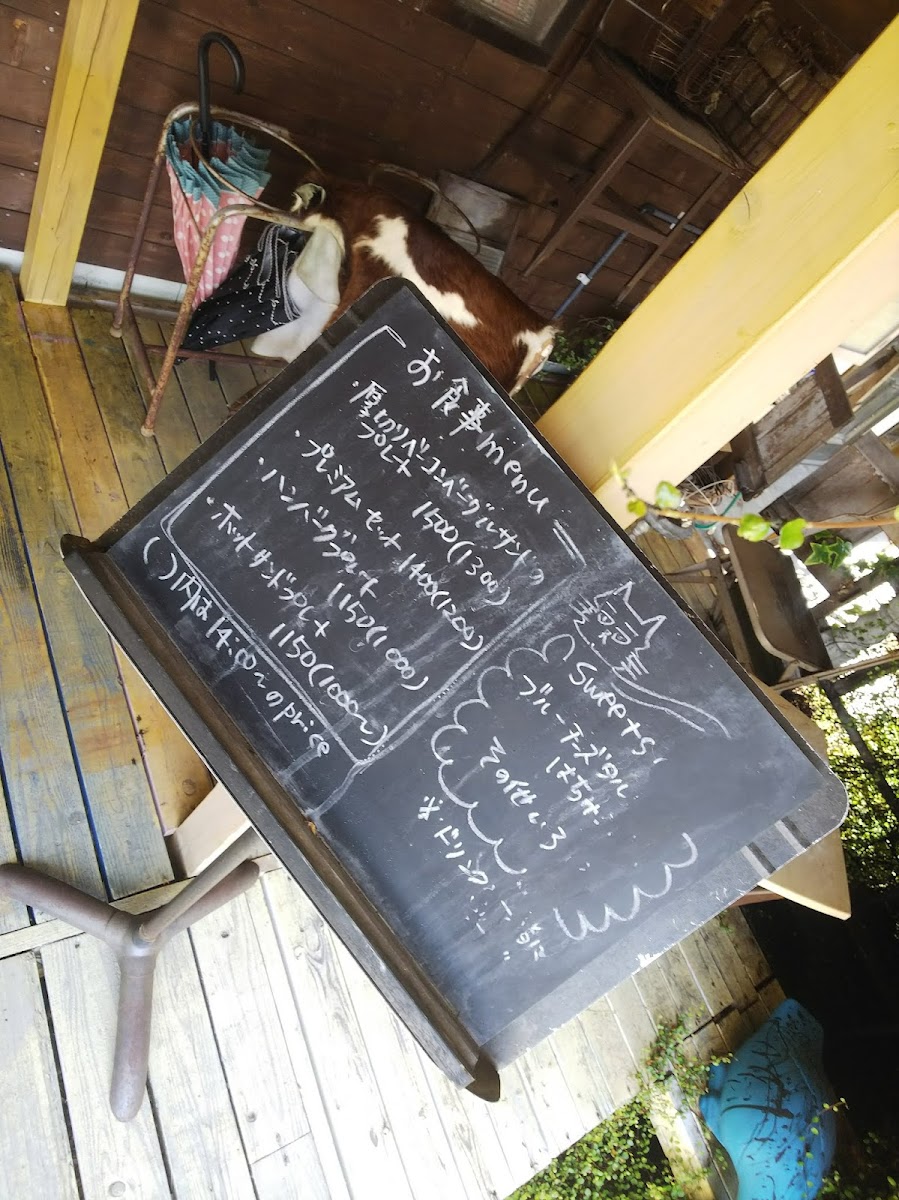 お食事menu
・厚切りベーコンベーグルサンドの
プレート 1500(1300)
・プレミアムセット 1400(1200)
・ハンバーグプレート 1150(1000)
・ホットサンドプレート 1150(1000〜)
( )内は14:00〜のprice
Sweets
ブルーチーズタルト
はちみ
その他いろ
※ドリンク